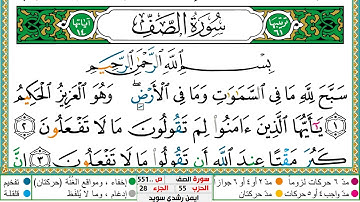 ترتيبها ٦١ سُورَةُ الصَّفِّ آياتها ١٤
بِسْمِ اللَّهِ الرَّحْمَٰنِ الرَّحِيمِ
سَبَّحَ لِلَّهِ مَا فِي السَّمَٰوَٰتِ وَمَا فِي الْأَرْضِ ۖ وَهُوَ الْعَزِيزُ الْحَكِيمُ
١ يَٰٓأَيُّهَا الَّذِينَ ءَامَنُوا لِمَ تَقُولُونَ مَا لَا تَفْعَلُونَ ٢
كَبُرَ مَقْتًا عِندَ اللَّهِ أَن تَقُولُوا مَا لَا تَفْعَلُونَ ٣ إِنَّ
مدّ ٦ حركات لزوما مدّ ٢ أو ٤ أو ٦ جوازا إخفاء، ومواقع الغُنَّة (حركتان) تفخيم
مدّ واجب ٤ أو ٥ حركات مدّ حركتان إدغام، وما لا يُلفَظ قلقلة
سورة الصف ص 551
الحزب 55 الجزء 28
أيمن رشدي سويد